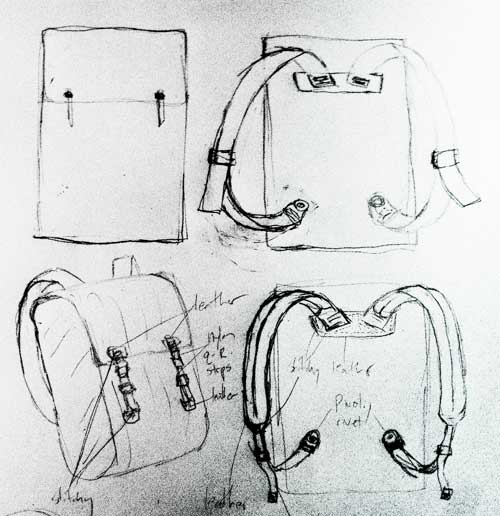 leather
nylon
q.R.
straps
leather
stitching
stitching leather
Pivoting
rivet
leather